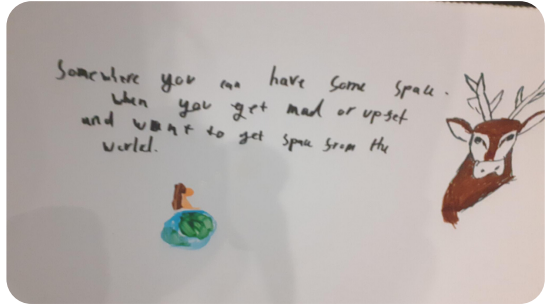 Somewhere you can have some space.
When you get mad or upset
and want to get space from the
world.